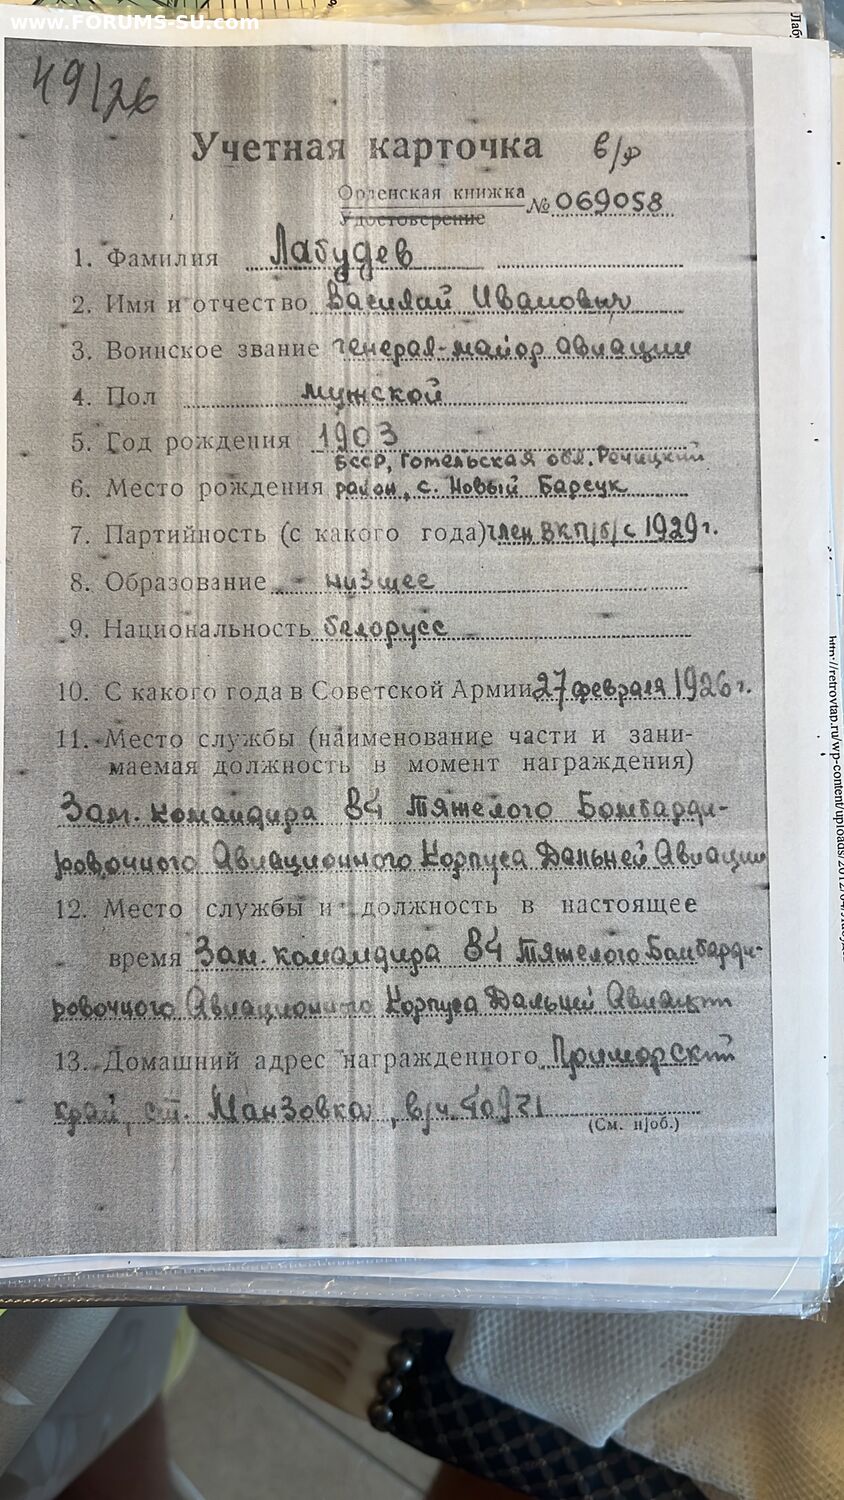 www.FORUMS-SU.com
49/26
Учетная карточка в/ф
Орденская книжка
Удостоверение
№ 069058
1. Фамилия Лабудев
2. Имя и отчество Василий Иванович
3. Воинское звание генерал-майор авиации
4. Пол мужской
5. Год рождения 1903
БССР, Гомельская обл. Речицкий
6. Место рождения район, с. Новый Барсук
7. Партийность (с какого года) член ВКП/б/ с 1929 г.
8. Образование низшее
9. Национальность белорусс
10. С какого года в Советской Армии 27 февраля 1926 г.
11. Место службы (наименование части и зани-
маемая должность в момент награждения)
Зам. командира 84 Тяжелого Бомбарди-
ровочного Авиационного Корпуса Дальней Авиации
12. Место службы и должность в настоящее
время Зам. командира 84 Тяжелого Бомбарди-
ровочного Авиационного Корпуса Дальней Авиации
13. Домашний адрес награжденного Приморский
край, ст. Манзовка, в/ч
(См. н/об.)